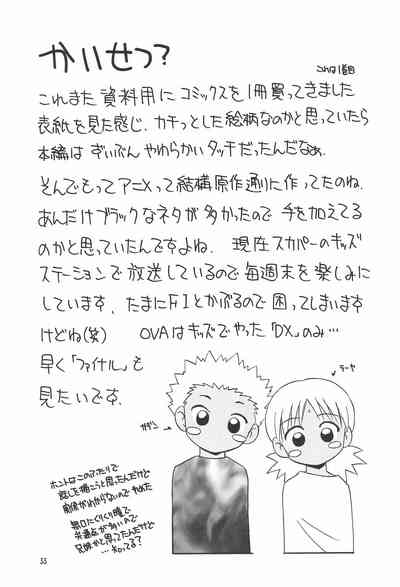 かいせつ?
これまた資料用にコミックスを1冊買ってきました
表紙を見た感じ、カチっとした絵柄なのかと思っていたら
本編はずいぶんやわらかいタッチだったんだなぁ。
そんでもってアニメって結構原作通りに作ってたのね。
あんだけブラックなネタが多かったので手を加えてる
のかと思っていたんですよね。 現在スカパーのキッズ
ステーションで放送しているので毎週末を楽しみに
しています。たまにF1とかぶるので困ってしまいます
けどね(笑) OVAはキッズでやった「DX」のみ…
早く「ファイナル」も
見たいです。
ラーヤ
ホントはこのふたりで
話しを描こうと思ったんだけど
関係がわからないのでやめた
無口にくりくり瞳で
共通点が多いので
兄妹かと思ってたんだけど
…知ってる?
55